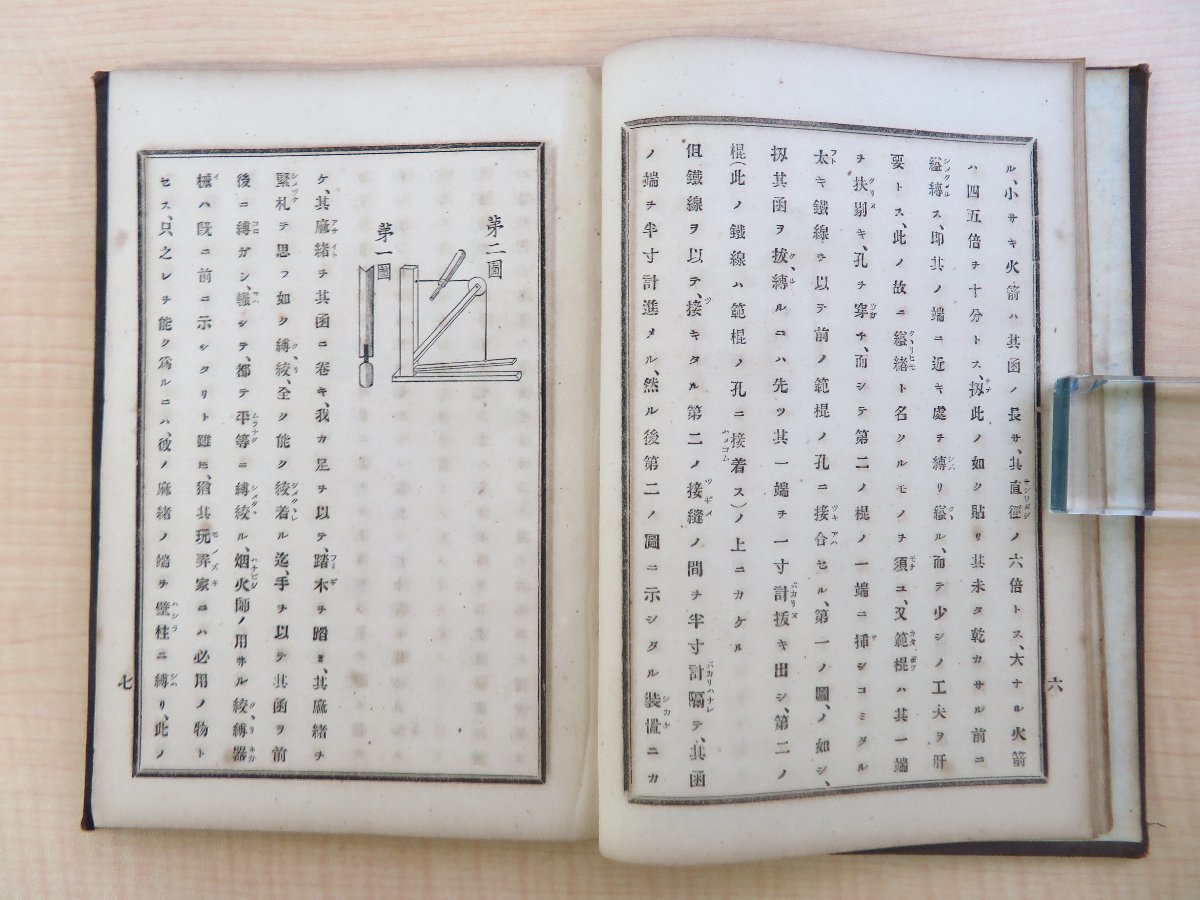 ル、小サキ火箭ハ其函ノ長サ、其直徑ノ六倍トス、大ナル火箭
ハ四五倍ヲ十分トス、扨此ノ如ク貼リ其未タ乾カサル前ニ
縊縛ス、即其ノ端ニ近キ處ヲ縛リ縊ル、而テ少シノ工夫ヲ肝
要トス、此ノ故ニ縊緒ト名クルモノヲ須ユ、又範棍ハ其一端
ヲ扶剔キ、孔ヲ穿チ、而シテ第二ノ棍ノ一端ニ挿シコミタル
太キ鐵線ヲ以テ前ノ範棍ノ孔ニ接合セル、第一ノ圖ノ如シ、
扨其函ヲ拔縛ルニハ先ツ其一端ヲ一寸計拔キ出シ、第二ノ
棍(此ノ鐵線ハ範棍ノ孔ニ接着ス)ノ上ニカケル
但鐵線ヲ以テ、接キタル第二ノ接縫ノ間ヲ半寸計隔テ、其函
ノ端ヲ半寸計進メル、然ル後第二ノ圖ニ示シタル裝置ニカ
六
第二圖
第一圖
ケ、其麻緒ヲ其函ニ卷キ、我カ足ヲ以テ、踏木ヲ踏ミ、其麻緒ヲ
緊札テ思フ如ク縛絞、全ク能ク絞着ル迄、手ヲ以テ其函ヲ前
後ニ縛ガシ、輾シテ、都テ平等ニ縛絞ル、烟火師ノ用サル絞縛器
械ハ既ニ前ニ示シタリト雖𪜈、猶其玩弄家ニハ必用ノ物ト
セス、只之レヲ能ク爲ルニハ、彼ノ麻緒ノ端ヲ壁柱ニ縛リ、此ノ
七